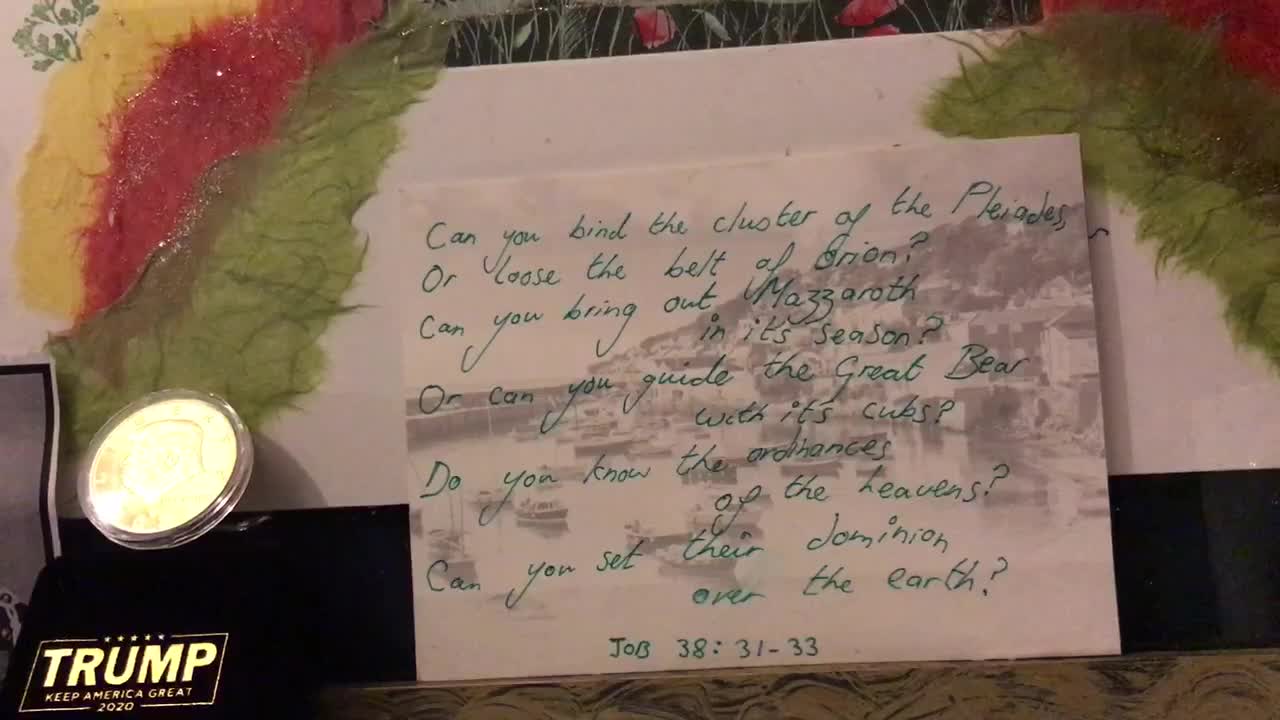 Can you bind the cluster of the Pleiades,
Or loose the belt of Orion?
Can you bring out Mazzaroth
in it's season?
Or can you guide the Great Bear
with it's cubs?
Do you know the ordinances
of the heavens?
Can you set their dominion
over the earth?
JOB 38: 31-33
TRUMP
KEEP AMERICA GREAT
2020